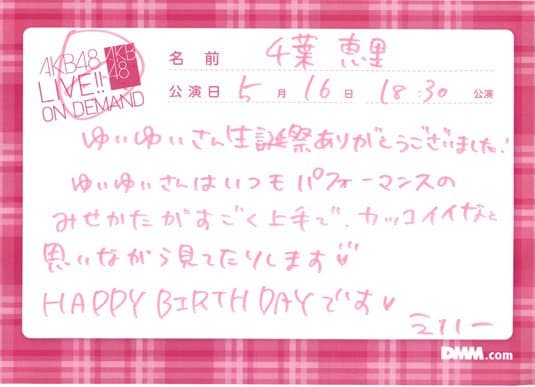 AKB48
LIVE!!
ON DEMAND
AKB
48
名前 千葉恵里
公演日 5月16日 18:30 公演
ゆいゆいさん生誕祭ありがとうございました!
ゆいゆいさんはいつもパフォーマンスの
みせかたがすごく上手で、カッコイイなと
思いながら見てたりします♡
HAPPY BIRTHDAYです♥
えりいー
DMM.com